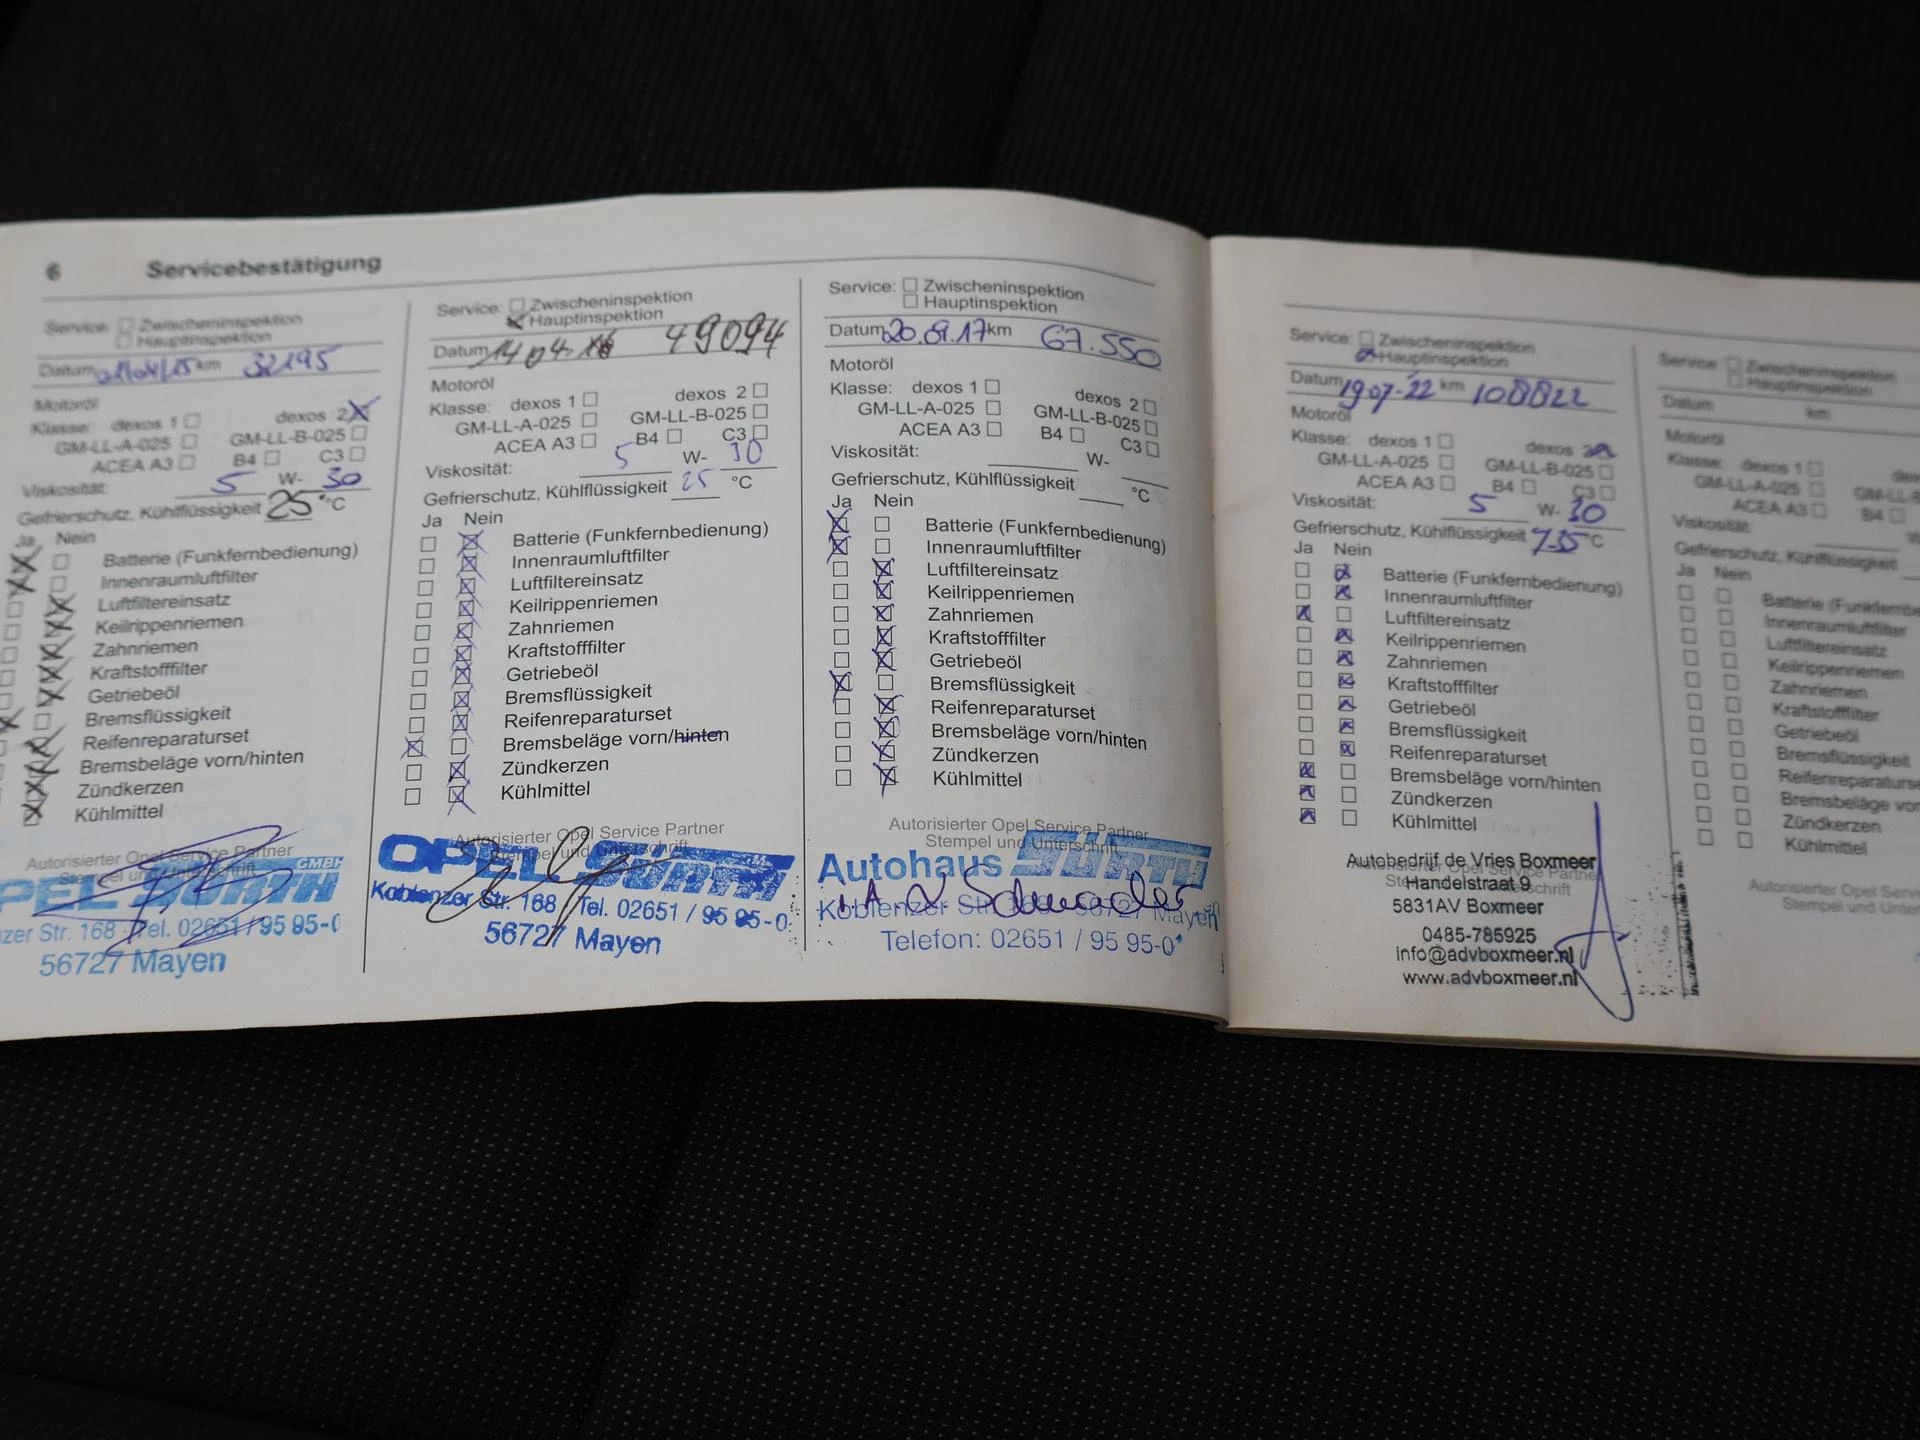 6 Servicebestätigung
Service: Zwischeninspektion
Hauptinspektion
Datum 01/04/15 km 32195
Motoröl
Klasse: dexos 1 dexos 2
GM-LL-A-025 GM-LL-B-025
ACEA A3 B4 C3
Viskosität: 5 W- 30
Gefrierschutz, Kühlflüssigkeit 25 °C
Ja Nein
Batterie (Funkfernbedienung)
Innenraumluftfilter
Luftfiltereinsatz
Keilrippenriemen
Zahnriemen
Kraftstofffilter
Getriebeöl
Bremsflüssigkeit
Reifenreparaturset
Bremsbeläge vorn/hinten
Zündkerzen
Kühlmittel
Autorisierter Opel Service Partner
Stempel und Unterschrift
PEL SÜRTH GMBH
zer Str. 168 Tel. 02651/95 95-0
56727 Mayen
Service: Zwischeninspektion
Hauptinspektion
Datum 14.04.16 49094
Motoröl
Klasse: dexos 1 dexos 2
GM-LL-A-025 GM-LL-B-025
ACEA A3 B4 C3
Viskosität: 5 W- 30
Gefrierschutz, Kühlflüssigkeit 25 °C
Ja Nein
Batterie (Funkfernbedienung)
Innenraumluftfilter
Luftfiltereinsatz
Keilrippenriemen
Zahnriemen
Kraftstofffilter
Getriebeöl
Bremsflüssigkeit
Reifenreparaturset
Bremsbeläge vorn/hinten
Zündkerzen
Kühlmittel
Autorisierter Opel Service Partner
Stempel und Unterschrift
OPEL SÜRTH
Koblenzer Str. 168 Tel. 02651 / 95 95-0
56727 Mayen
Service: Zwischeninspektion
Hauptinspektion
Datum 20.09.17 km 67.550
Motoröl
Klasse: dexos 1 dexos 2
GM-LL-A-025 GM-LL-B-025
ACEA A3 B4 C3
Viskosität: W-
Gefrierschutz, Kühlflüssigkeit °C
Ja Nein
Batterie (Funkfernbedienung)
Innenraumluftfilter
Luftfiltereinsatz
Keilrippenriemen
Zahnriemen
Kraftstofffilter
Getriebeöl
Bremsflüssigkeit
Reifenreparaturset
Bremsbeläge vorn/hinten
Zündkerzen
Kühlmittel
Autorisierter Opel Service Partner
Stempel und Unterschrift
Autohaus SÜRTH
Koblenzer Str. 168 56727 Mayen
Telefon: 02651 / 95 95-0
Service: Zwischeninspektion
Hauptinspektion
Datum 19-07-22 km 108822
Motoröl
Klasse: dexos 1 dexos 2
GM-LL-A-025 GM-LL-B-025
ACEA A3 B4 C3
Viskosität: 5 W- 30
Gefrierschutz, Kühlflüssigkeit °C
Ja Nein
Batterie (Funkfernbedienung)
Innenraumluftfilter
Luftfiltereinsatz
Keilrippenriemen
Zahnriemen
Kraftstofffilter
Getriebeöl
Bremsflüssigkeit
Reifenreparaturset
Bremsbeläge vorn/hinten
Zündkerzen
Kühlmittel
Autobedrijf de Vries Boxmeer
Handelstraat 9
5831AV Boxmeer
0485-785925
info@advboxmeer.nl
www.advboxmeer.nl
Service: Zwischeninspektion
Hauptinspektion
Datum km
Motoröl
Klasse: dexos 1
GM-LL-A-025
ACEA A3 B4
Viskosität:
Gefrierschutz, Kühlflüssigkeit
Ja Nein
Batterie (Funkfernbe
Innenraumluftfilter
Luftfiltereinsatz
Keilrippenriemen
Zahnriemen
Kraftstofffilter
Getriebeöl
Bremsflüssigkeit
Reifenreparaturse
Bremsbeläge vor
Zündkerzen
Kühlmittel
Autorisierter Opel Servi
Stempel und Unter